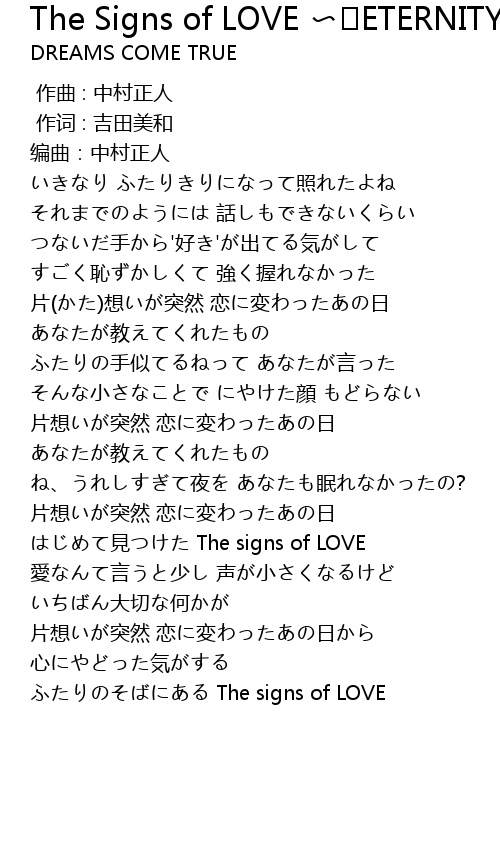 The Signs of LOVE 〜□ETERNITY
DREAMS COME TRUE
作曲 : 中村正人
作词 : 吉田美和
编曲：中村正人
いきなり ふたりきりになって照れたよね
それまでのようには 話しもできないくらい
つないだ手から'好き'が出てる気がして
すごく恥ずかしくて 強く握れなかった
片(かた)想いが突然 恋に変わったあの日
あなたが教えてくれたもの
ふたりの手似てるねって あなたが言った
そんな小さなことで にやけた顔 もどらない
片想いが突然 恋に変わったあの日
あなたが教えてくれたもの
ね、うれしすぎて夜を あなたも眠れなかったの?
片想いが突然 恋に変わったあの日
はじめて見つけた The signs of LOVE
愛なんて言うと少し 声が小さくなるけど
いちばん大切な何かが
片想いが突然 恋に変わったあの日から
心にやどった気がする
ふたりのそばにある The signs of LOVE